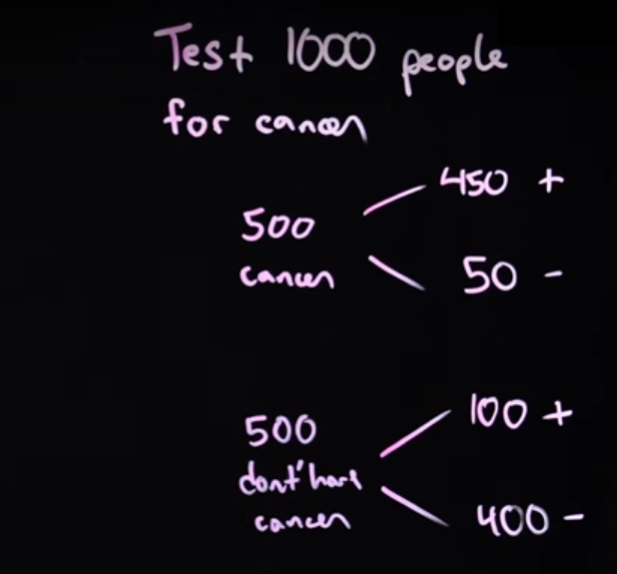 Test 1000 people
for cancer
450 +
500
cancer
50 -
100 +
500
dont' have
cancer
400 -